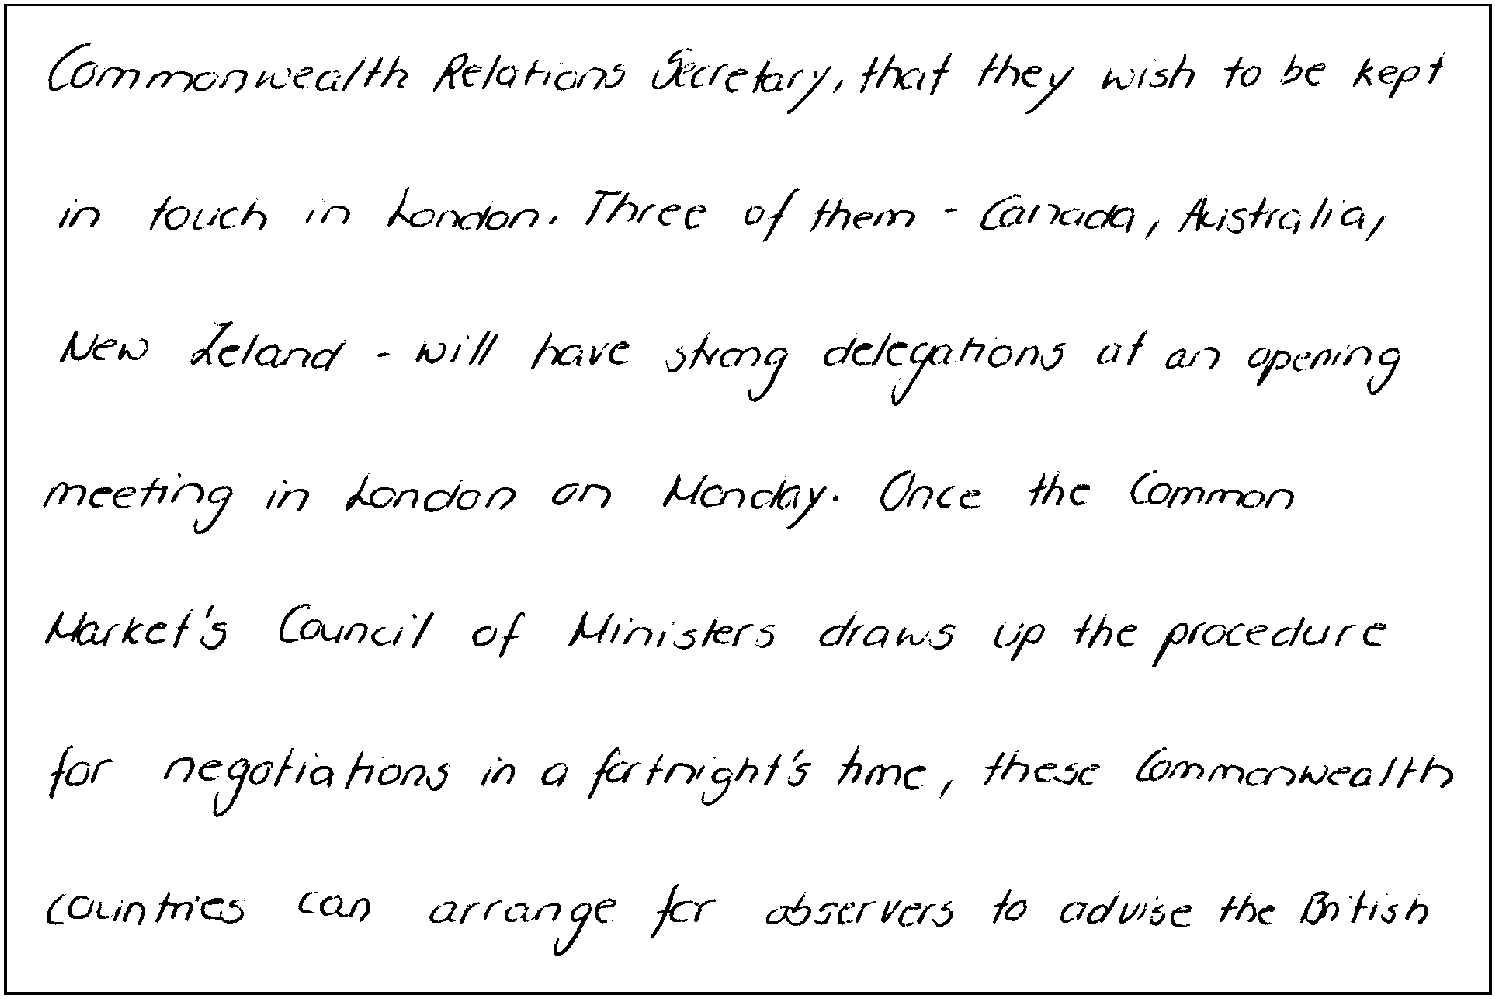 Commonwealth Relations Secretary, that they wish to be kept
in touch in London. Three of them - Canada, Australia,
New Zeland - will have strong delegations at an opening
meeting in London on Monday. Once the Common
Market's Council of Ministers draws up the procedure
for negotiations in a fortnight's time, these Commonwealth
countries can arrange for observers to advise the British